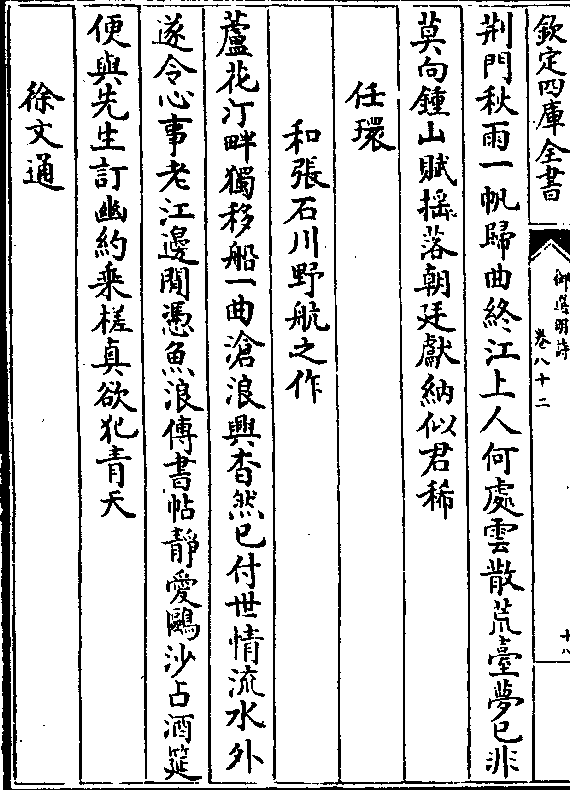 欽定四庫全書
御選明詩
卷八十二
十八
荆門秋雨一帆歸曲終江上人何處雲散荒臺夢已非
莫向鍾山賦揺落朝廷獻納似君稀
任環
和張石川野航之作
蘆花汀畔獨移船一曲滄浪興杳然已付世情流水外
遂令心事老江邊閒憑魚浪傳書帖靜愛鷗沙占酒筵
便與先生訂幽約乘槎真欲犯青天
徐文通